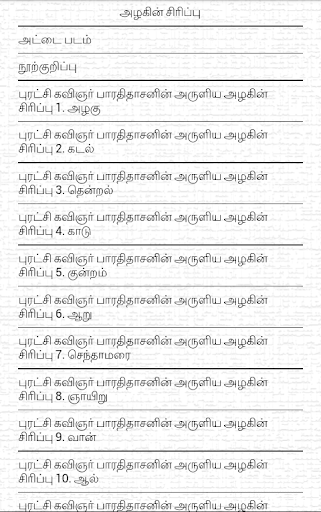 அழகின் சிரிப்பு
அட்டை படம்
நூற்குறிப்பு
புரட்சி கவிஞர் பாரதிதாசனின் அருளிய அழகின்
சிரிப்பு 1. அழகு
புரட்சி கவிஞர் பாரதிதாசனின் அருளிய அழகின்
சிரிப்பு 2. கடல்
புரட்சி கவிஞர் பாரதிதாசனின் அருளிய அழகின்
சிரிப்பு 3. தென்றல்
புரட்சி கவிஞர் பாரதிதாசனின் அருளிய அழகின்
சிரிப்பு 4. காடு
புரட்சி கவிஞர் பாரதிதாசனின் அருளிய அழகின்
சிரிப்பு 5. குன்றம்
புரட்சி கவிஞர் பாரதிதாசனின் அருளிய அழகின்
சிரிப்பு 6. ஆறு
புரட்சி கவிஞர் பாரதிதாசனின் அருளிய அழகின்
சிரிப்பு 7. செந்தாமரை
புரட்சி கவிஞர் பாரதிதாசனின் அருளிய அழகின்
சிரிப்பு 8. ஞாயிறு
புரட்சி கவிஞர் பாரதிதாசனின் அருளிய அழகின்
சிரிப்பு 9. வான்
புரட்சி கவிஞர் பாரதிதாசனின் அருளிய அழகின்
சிரிப்பு 10. ஆல்
புரட்சி கவிஞர் பாரதிதாசனின் அருளிய அழகின்